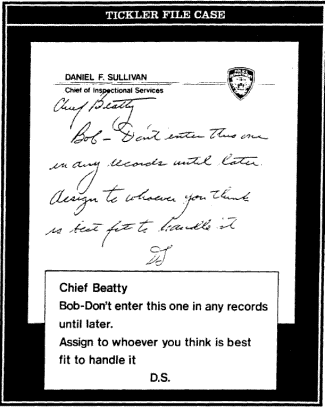 TICKLER FILE CASE
DANIEL F. SULLIVAN
Chief of Inspectional Services
Chief Beatty
Bob - Don't enter this one
in any records until later.
Assign to whoever you think
is best fit to handle it
DS
Chief Beatty
Bob-Don't enter this one in any records
until later.
Assign to whoever you think is best
fit to handle it
D.S.